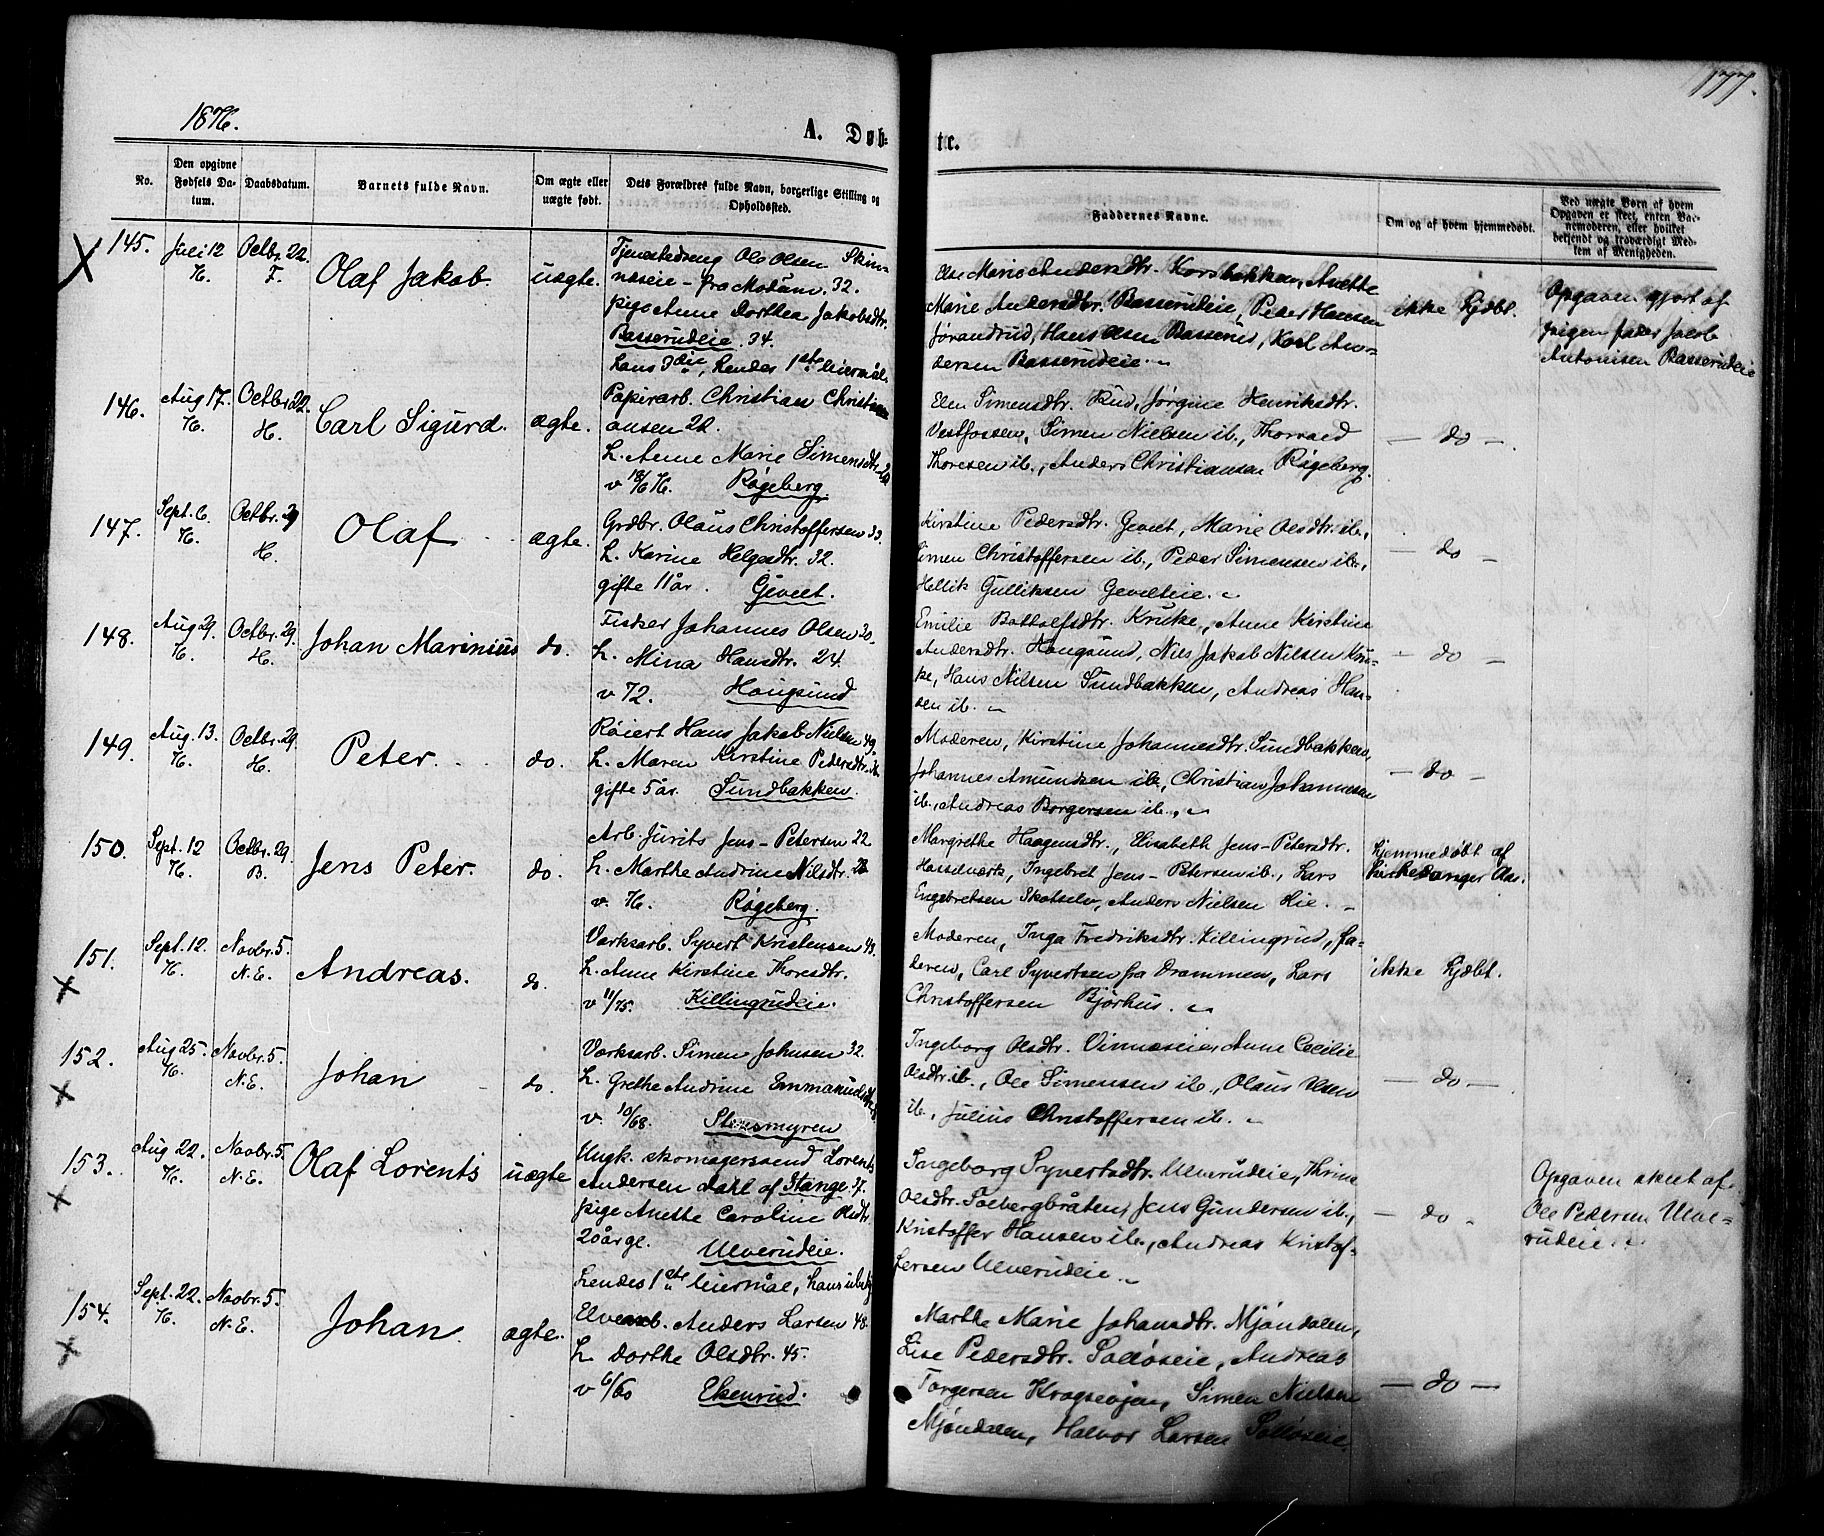 1876.
A. Døb-
te.
177.
No.
Den opgivne Fødsels Datum.
Daabsdatum.
Barnets fulde Navn.
Om ægte eller uægte født.
Dets Forældres fulde Navn, borgerlige Stilling og Opholdssted.
Faddernes Navne.
Om og af hvem hjemmedøbt.
Ved uægte Børn af hvem Opgaven er skeet, enten Barnemoderen, eller hvilket bekjendt og troværdigt Medlem af Menigheden.
145. Juli 12 H. Octbr. 22. F. Olaf Jakob. uægte.
Tjenestedreng Ole Olsen Skin-
næseie - fra Modum. 32.
pige Anne Dorthea Jakobsdtr.
Basserudeie. 34.
Hans 3die, hendes 1ste leiermål.
Else Marie Andersdtr. Korsbakken, Anette
Marie Andersdtr. Basserudeie, Peder Hansen
Jørandrud, Hans Olsen Basserud, Karl An-
dersen Basserudeie.
ikke hjdbt.
Opgaven gjort af
pigen fader Jacob
Antonisen Basserudeie
146. Aug 17. H. Octbr 22. H. Carl Sigurd. ægte.
Papirarb. Christian Christi-
ansen 22.
H. Anne Marie Simensdtr.
v 18/6 76. Røgeberg.
Elen Simensdtr. Rud, Jørgine Henriksdtr.
Vestfossen, Simen Nielsen ib., Thorvald
Thoresen ib., Anders Christiansen Røgeberg.
- do -
147. Sept. 6. H. Octbr. 29 H. Olaf ægte.
Grdbr. Olaus Christoffersen 33.
H. Karine Helgesdtr. 32.
gifte 11 år. Gevelt.
Kirstine Pedersdtr. Gevelt, Marie Olsdtr. ib.,
Simen Christoffersen ib., Peder Simensen ib.,
Hellik Gulliksen Gevelteie.
- do -
148. Aug 29. H. Octbr. 29. H. Johan Marinius do.
Fisker Johannes Olsen 30.
H. Mina Hansdtr. 24.
v 72. Hougsund
Emilie Bottolfsdtr. Kruke, Anne Kirstine
Andersdtr. Hougsund, Nils Jakob Nilsen Kru-
ke, Hans Nilsen Sundbakken, Andreas Han-
sen ib.
- do -
149. Aug. 13. H. Octbr. 29. H. Peter. do.
Røiert Hans Jakob Nielsen 49.
H. Maren Kirstine Pedersdtr.
gifte 5 år. Sundbakken.
Moderen, Kirstine Johannesdtr. Sundbakken,
Johannes Amundsen ib., Christian Johannesen
ib., Andreas Borgersen ib.
- do -
150. Sept. 12 H. Octbr. 29. B. Jens Peter. do.
Arb. Jurits Jens-Petersen 22
H. Marthe Andrine Nilsdtr. 23
v. 76. Røgeberg.
Margrethe Haagensdtr., Elisabeth Jens-Petersdtr.
Hasselværk, Ingebret Jens-Petersen ib., Lars
Engebretsen Skotselv, Anders Nielsen Hie.
hjemmedøbt af
kirkesanger Aas.
151. Sept. 12. H. Novbr. 5. N.E. Andreas. do.
Værksarb. Syvert Kristensen 43.
H. Anne Kirstine Thoresdtr.
v 11/75. Killingrudeie.
Moderen, Inga Fredriksdtr. Killingrud, fa-
deren, Carl Syvertsen fra Drammen, Lars
Christoffersen Bjørhus.
ikke hjdbt.
152. Aug 25. H. Novbr. 5. N.E. Johan do.
Værksarb. Simen Johnsen 32.
H. Grethe Andrine Emmanuelsdtr.
v. 10/68. Stensmyren
Ingeborg Olsdtr. Vinnæseie, Anne Cecilie
Olsdtr. ib., Ole Simensen ib., Olaus Olsen
ib., Julius Christoffersen ib.
- do -
153. Aug 22. H. Novbr. 5. N.E. Olaf Lorents uægte
Ungk. skomagersvend Lorents
Andersen Dahl af Stange 37.
pige Anette Caroline Olsdtr.
20 år gl. Ulverudeie.
Hendes 1ste leiermåe, hans ubekj
Ingeborg Syvertsdtr. Ulverudeie, Thrine
Olsdtr. Solbergbråten, Jens Gundersen ib.,
Kristoffer Hansen ib., Andreas Kristof-
fersen Ulverudeie.
- do -
Opgaven skeet af
Ole Pedersen Ulve-
rudeie.
154. Sept. 22. H. Novbr. 5. N.E. Johan. ægte.
Elvearb. Anders Larsen 48.
H. Dorthe Olsdtr. 45.
v 6/60 Ekenrud.
Marthe Marie Johansdtr. Mjøndalen,
Lise Pedersdtr. Solløseie, Andreas
Torgersen Krogsvøjen, Simen Nielsen
Mjøndalen, Halvor Larsen Solløseie.
- do -